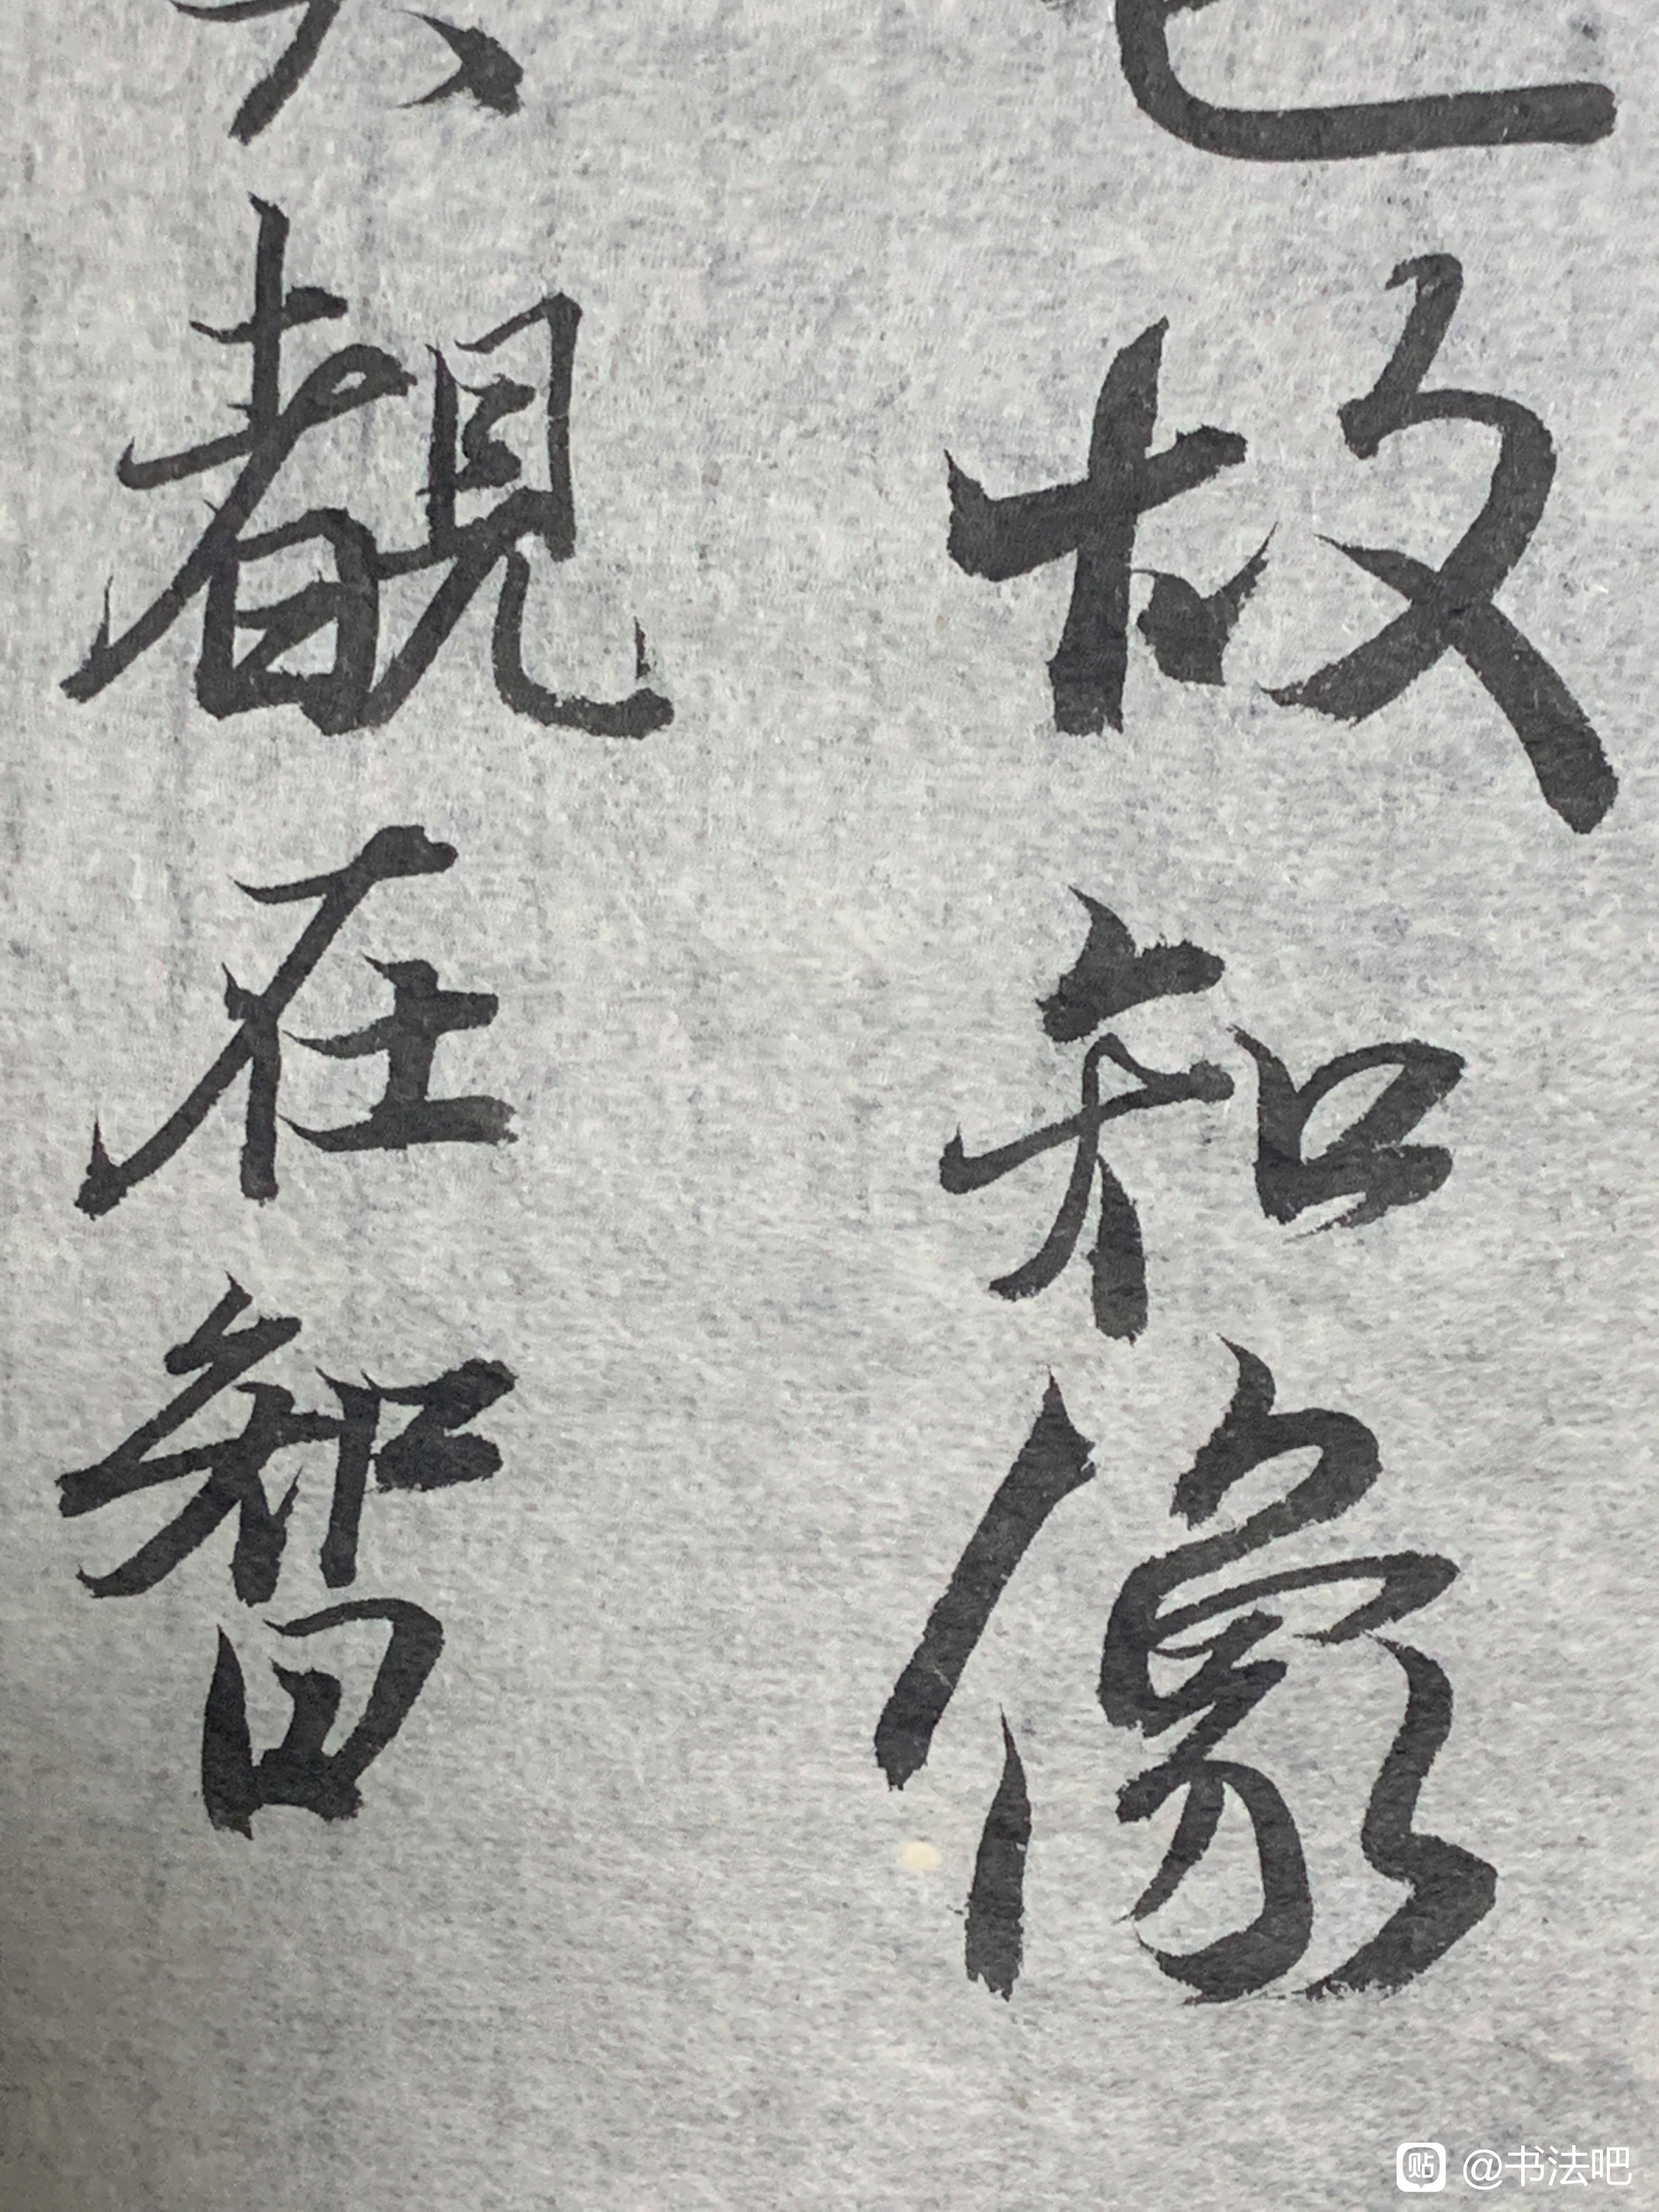 故知像
覩在智
@书法吧